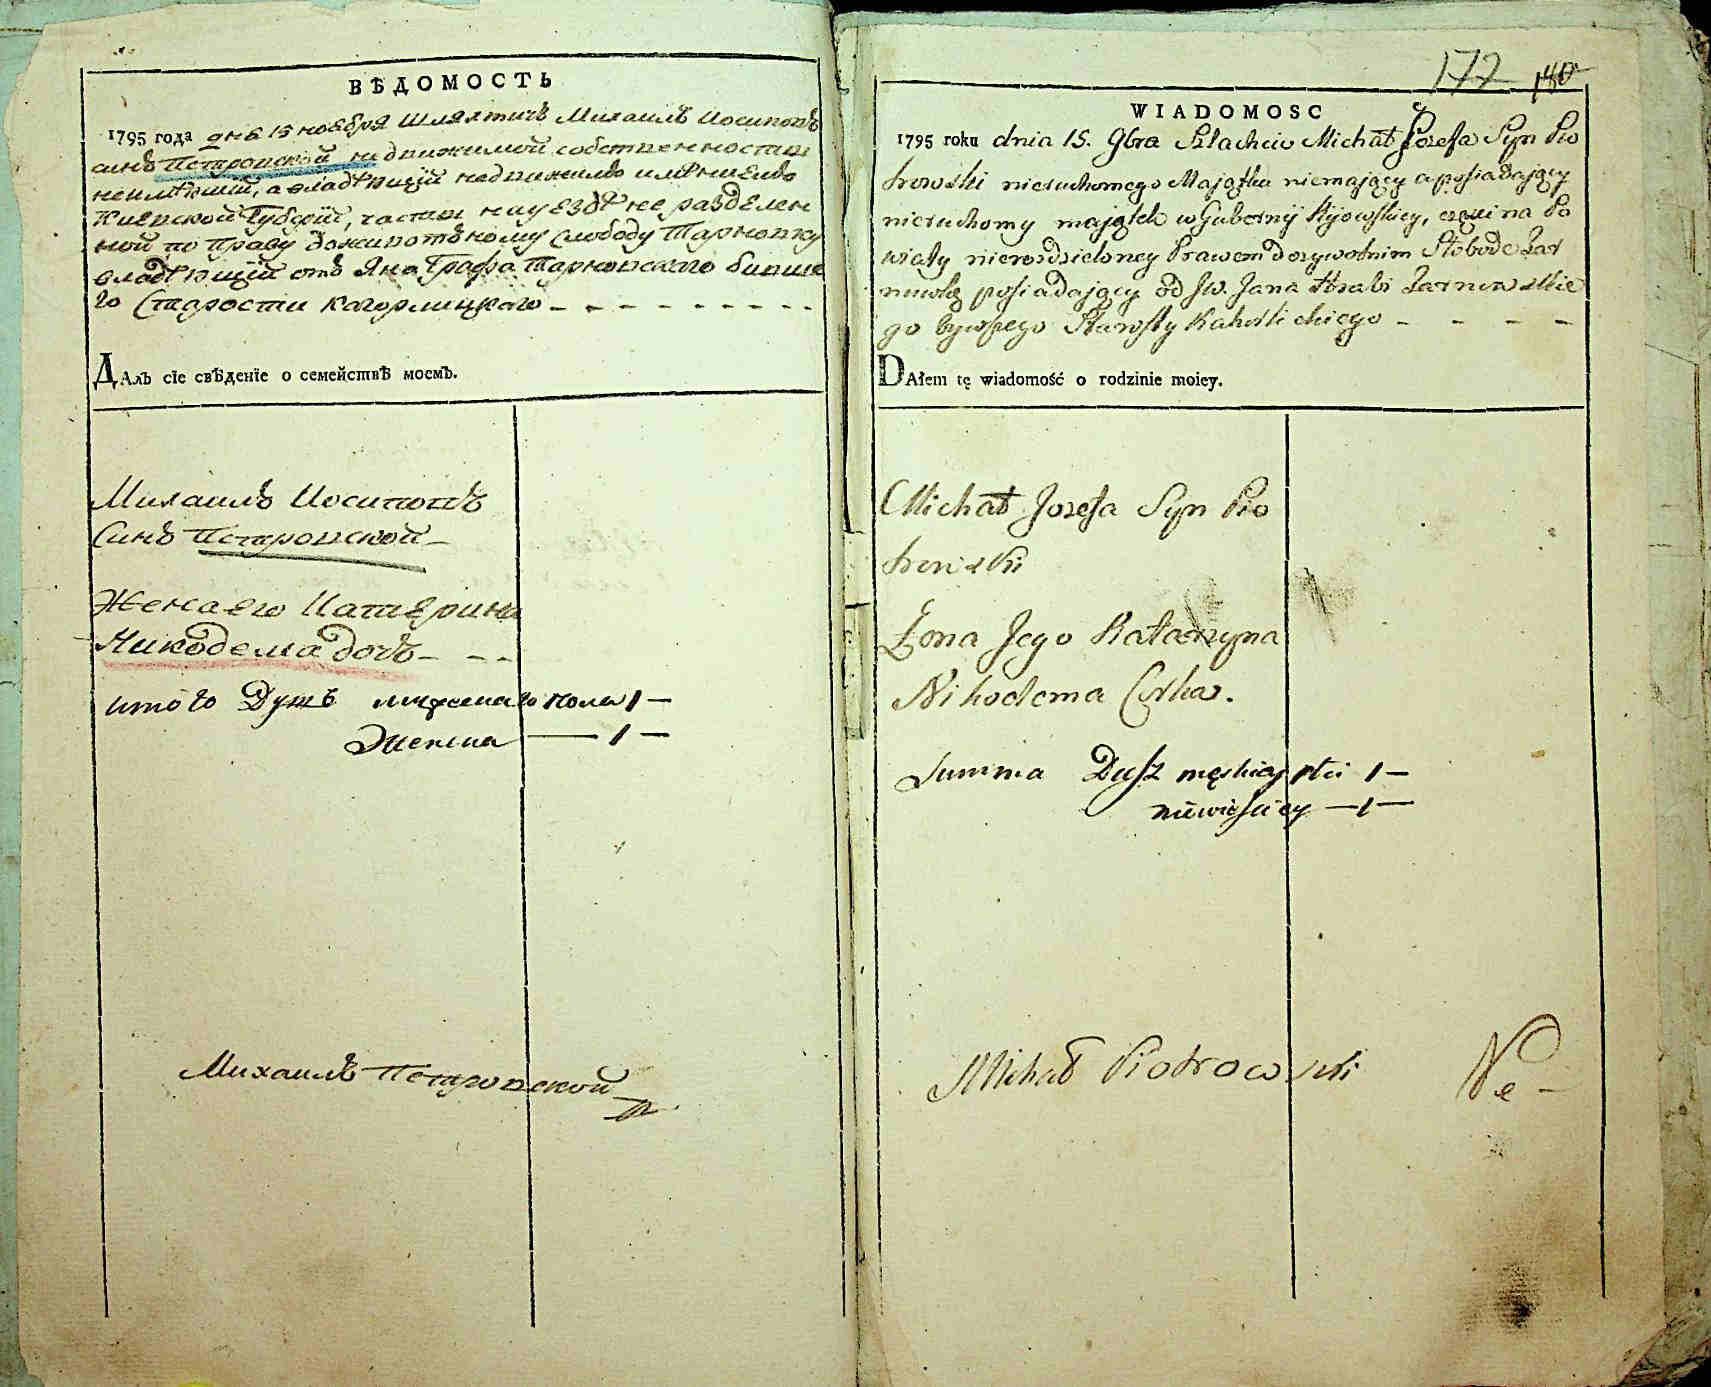 ВѢДОМОСТЬ
1795 года дня 15 ноября Шляхтичъ Михаилъ Иосиповъ
синъ Петровской недвижимой собственности
неимѣющїй, а владѣющїй недвижимъ имѣниемъ
Киевской Губернїи, части науездѣ не разделен
ной по праву доживотьному Слободу Тарновку
владѣющїй отъ Яна Графа Тарновского бивше
го Старости Кагорлицкого - - - - - - - -
ДАлъ сїе свѣденїе о семействѣ моемъ.
Михаилъ Иосиповъ
Синъ Петровской -
Жена его Катерина
Никодема дочь - - -
итого Душъ мужеска го пола 1 -
Женска — 1 -
Михаилъ Петровской
177 180
WIADOMOSC
1795 roku dnia 15. 9bra Szlachcic Michał Jozefa Syn Pio
trowski nieruchomego Majątku niemający a posiadający
nieruchomy majątek w Gubernij Kijowskiey, części na Po
wiaty nierozdzieloney Prawem dozywotnim Słobodę Tar
nowkę posiadający od Jw. Jana Hrabi Tarnowskie
go bywszego Starosty Kahorlickiego - - - -
DAłem tę wiadomość o rodzinie moiey.
Michał Jozefa Syn Pio
trowski
Żona Jego Katarzyna
Nikodema Corka.
Summa Dusz męskiey płci 1 -
niewieściey — 1 —
Michał Piotrowski